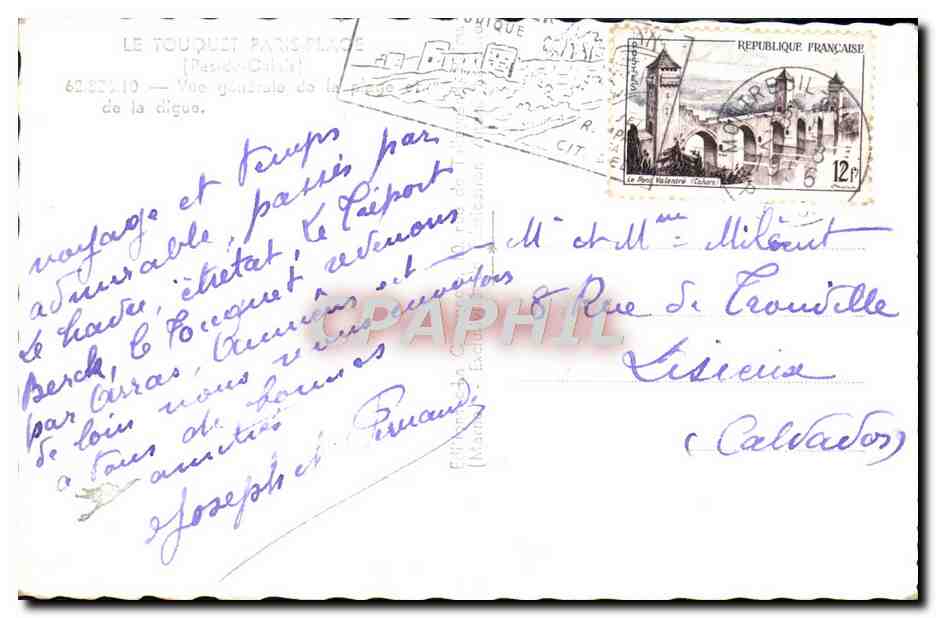 LE TOUQUET PARIS-PLAGE
(Pas-de-Calais)
62.826.10 — Vue générale de la plage et
de la digue.
voyage et temps
admirable, passés par
Le havre, étretat, Le Tréport
Berck, le Touquet revenons
par Arras, Amiens et
de loin nous vous envoyons
a tous de bonnes
amitiés
Joseph et
RÉPUBLIQUE FRANÇAISE
12F
Le Pont Valentré (Cahors)
MONTREUIL
1956
CIT
Mr et Mme Milcent
8 Rue de Trouville
Lisieux
(Calvados)
CPAPHIL